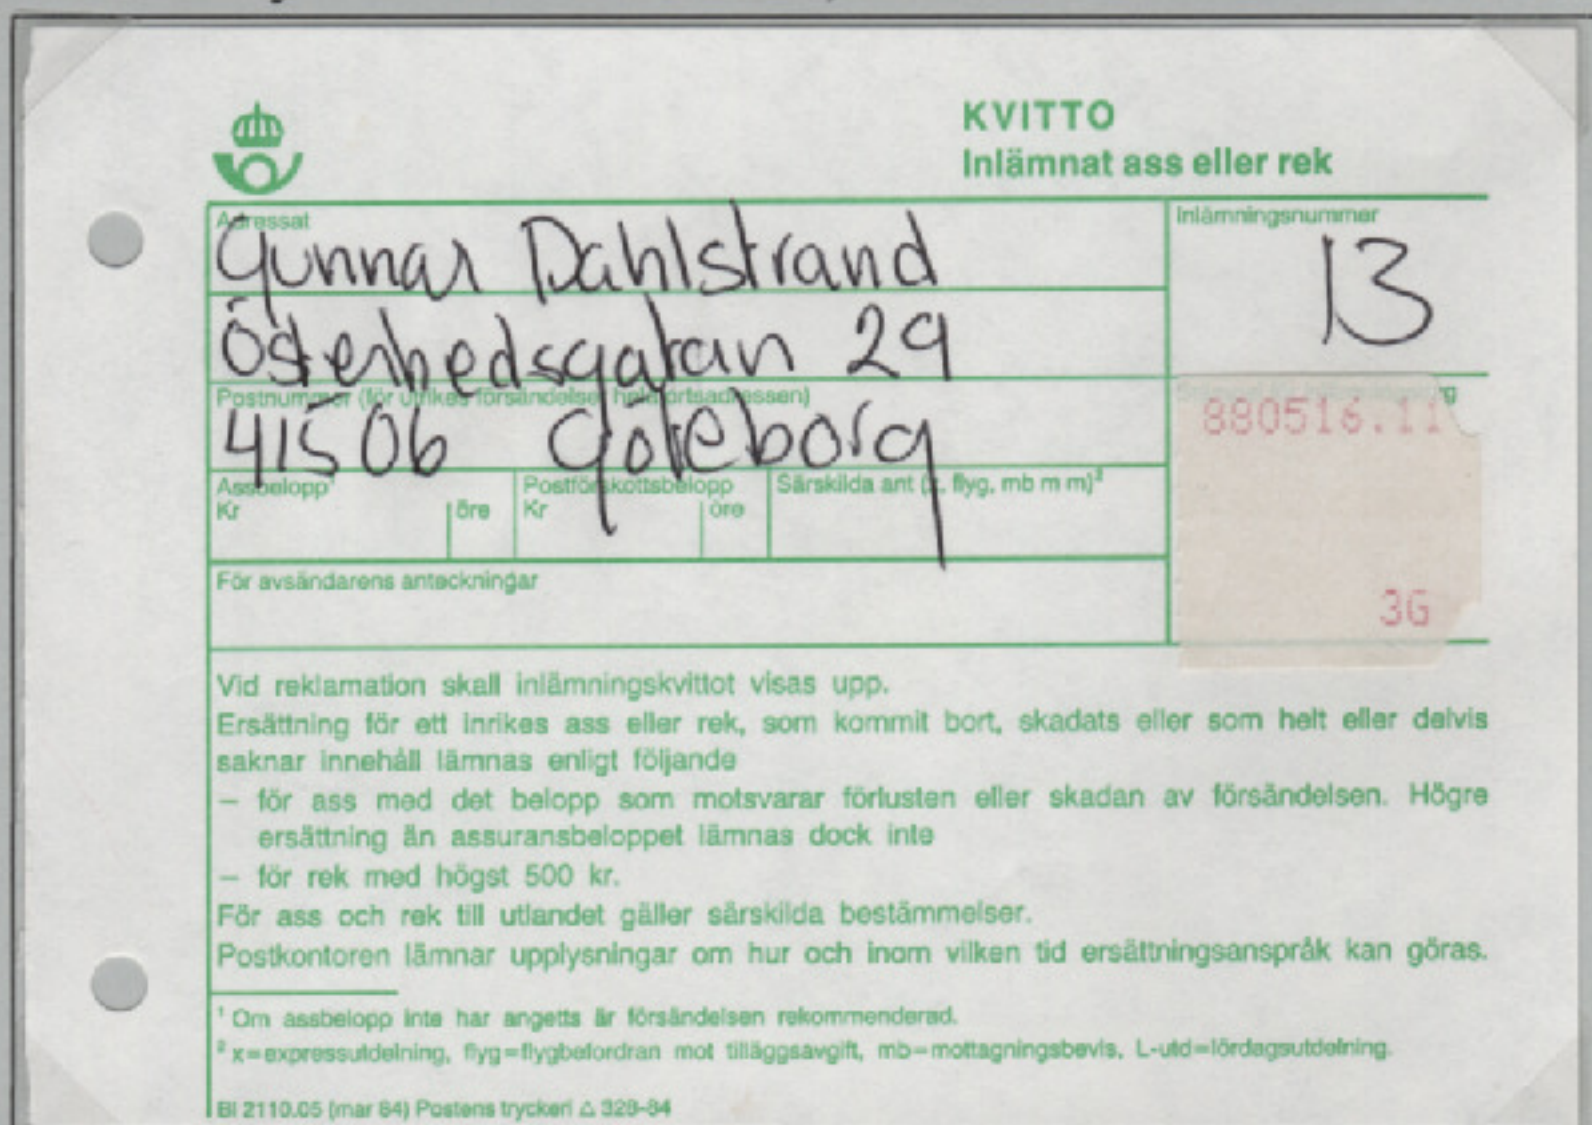 KVITTO
Inlämnat ass eller rek
Adressat
Gunnar Dahlstrand
Inlämningsnummer
13
Österhedsgatan 29
Postnummer (för utrikes försändelse hela ortsadressen)
41506 Göteborg
880516.11
3G
Assbelopp¹
Kr
öre
Postförskottsbelopp
Kr
öre
Särskilda ant (x, flyg, mb m m)²
För avsändarens anteckningar
Vid reklamation skall inlämningskvittot visas upp.
Ersättning för ett inrikes ass eller rek, som kommit bort, skadats eller som helt eller delvis
saknar innehåll lämnas enligt följande
– för ass med det belopp som motsvarar förlusten eller skadan av försändelsen. Högre
ersättning än assuransbeloppet lämnas dock inte
– för rek med högst 500 kr.
För ass och rek till utlandet gäller särskilda bestämmelser.
Postkontoren lämnar upplysningar om hur och inom vilken tid ersättningsanspråk kan göras.
¹ Om assbelopp inte har angetts är försändelsen rekommenderad.
² x=expressutdelning, flyg=flygbefordran mot tilläggsavgift, mb=mottagningsbevis, L-utd=lördagsutdelning.
Bl 2110.05 (mar 84) Postens tryckeri △ 328-84